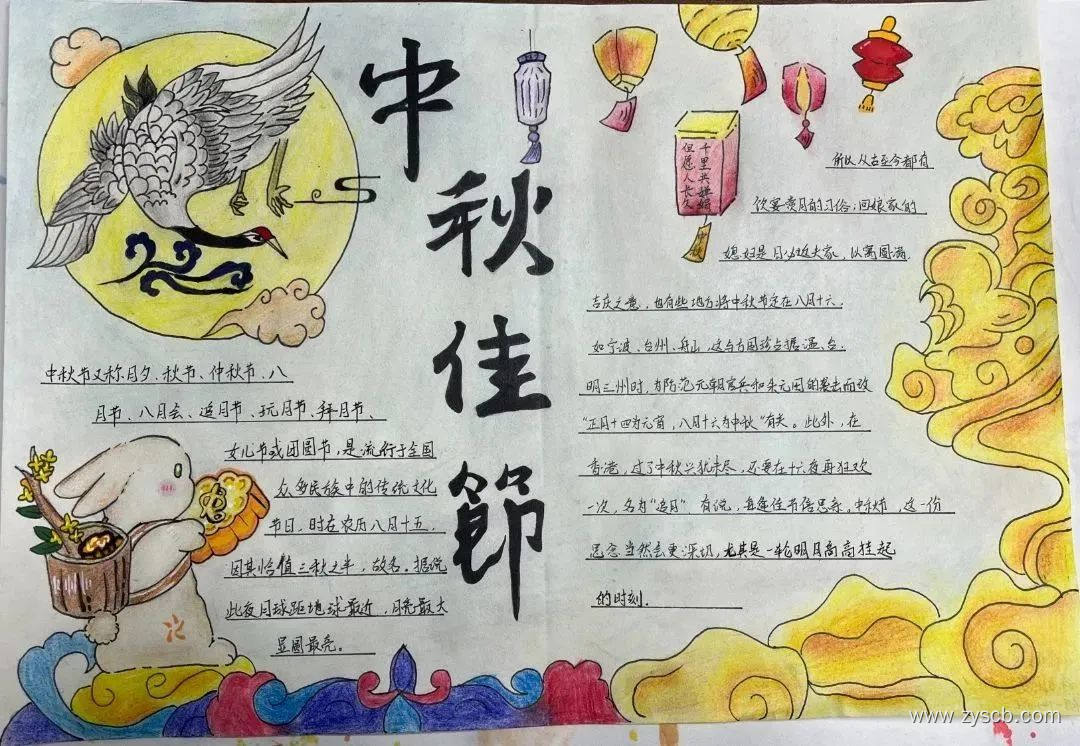 中
秋
佳
節
中秋节又称月夕、秋节、仲秋节、八
月节、八月会、追月节、玩月节、拜月节、
女儿节或团圆节，是流行于全国
众多民族中的传统文化
节日，时在农历八月十五，
因其恰值三秋之半，故名。据说
此夜月球距地球最近，月亮最大
显圆最亮。
千里共婵娟
但愿人长久
所以从古至今都有
饮宴赏月的习俗；回娘家的
媳妇是日必返夫家，以寓圆满、
吉庆之意，也有些地方将中秋节定在八月十六，
如宁波、台州、舟山，这与方国珍占据温、台、
明三州时，为防范元朝官兵和朱元璋的袭击而改
“正月十四为元宵，八月十六为中秋”有关。此外，在
香港，过了中秋兴犹未尽，还要在十六夜再狂欢
一次，名为“追月”。有说，每逢佳节倍思亲，中秋节，这一份
思念当然会更深切，尤其是一轮明月高高挂起
的时刻．
www.zyscb.com